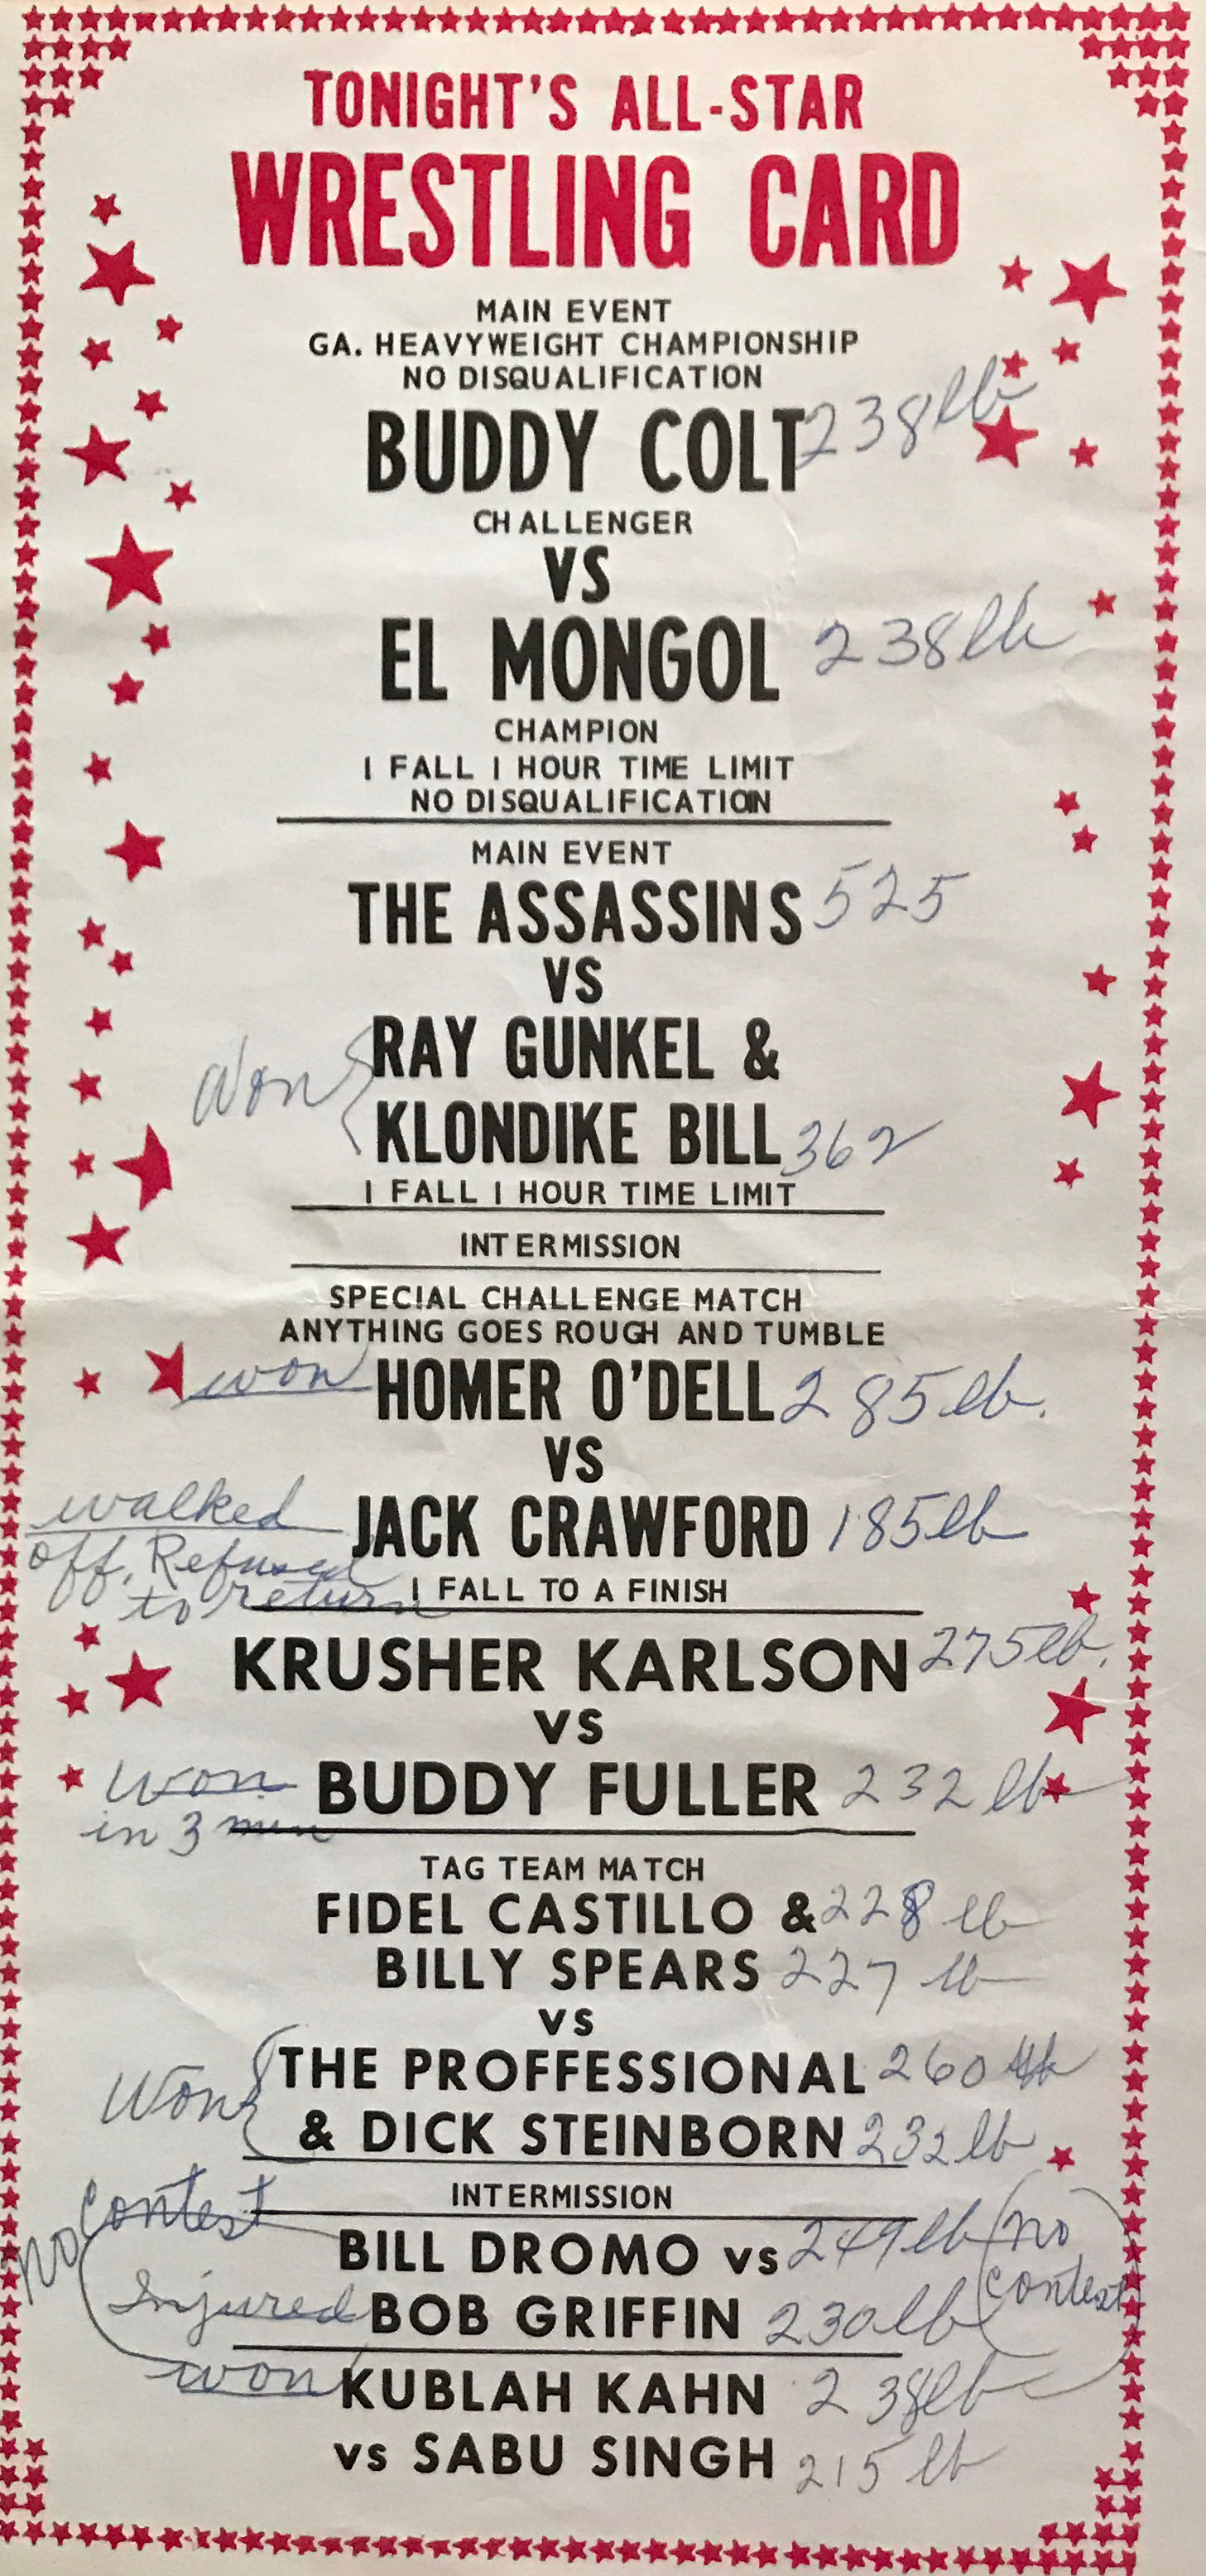 TONIGHT'S ALL-STAR
WRESTLING CARD
MAIN EVENT
GA. HEAVYWEIGHT CHAMPIONSHIP
NO DISQUALIFICATION
BUDDY COLT 238 lb
CHALLENGER
VS
EL MONGOL 238 lb
CHAMPION
1 FALL 1 HOUR TIME LIMIT
NO DISQUALIFICATION
MAIN EVENT
THE ASSASSINS 525
VS
Won RAY GUNKEL &
KLONDIKE BILL 362
1 FALL 1 HOUR TIME LIMIT
INTERMISSION
SPECIAL CHALLENGE MATCH
ANYTHING GOES ROUGH AND TUMBLE
won HOMER O'DELL 285 lb.
VS
walked JACK CRAWFORD 185 lb
off. Refused
to return 1 FALL TO A FINISH
KRUSHER KARLSON 275 lb.
VS
won BUDDY FULLER 232 lb
in 3 min
TAG TEAM MATCH
FIDEL CASTILLO & 228 lb
BILLY SPEARS 227 lb
VS
Won THE PROFFESSIONAL 260 lb
& DICK STEINBORN 232 lb
INTERMISSION
no contest BILL DROMO vs 249 lb (no
Injured BOB GRIFFIN 230 lb contest)
won KUBLAH KAHN 238 lb
vs SABU SINGH 215 lb